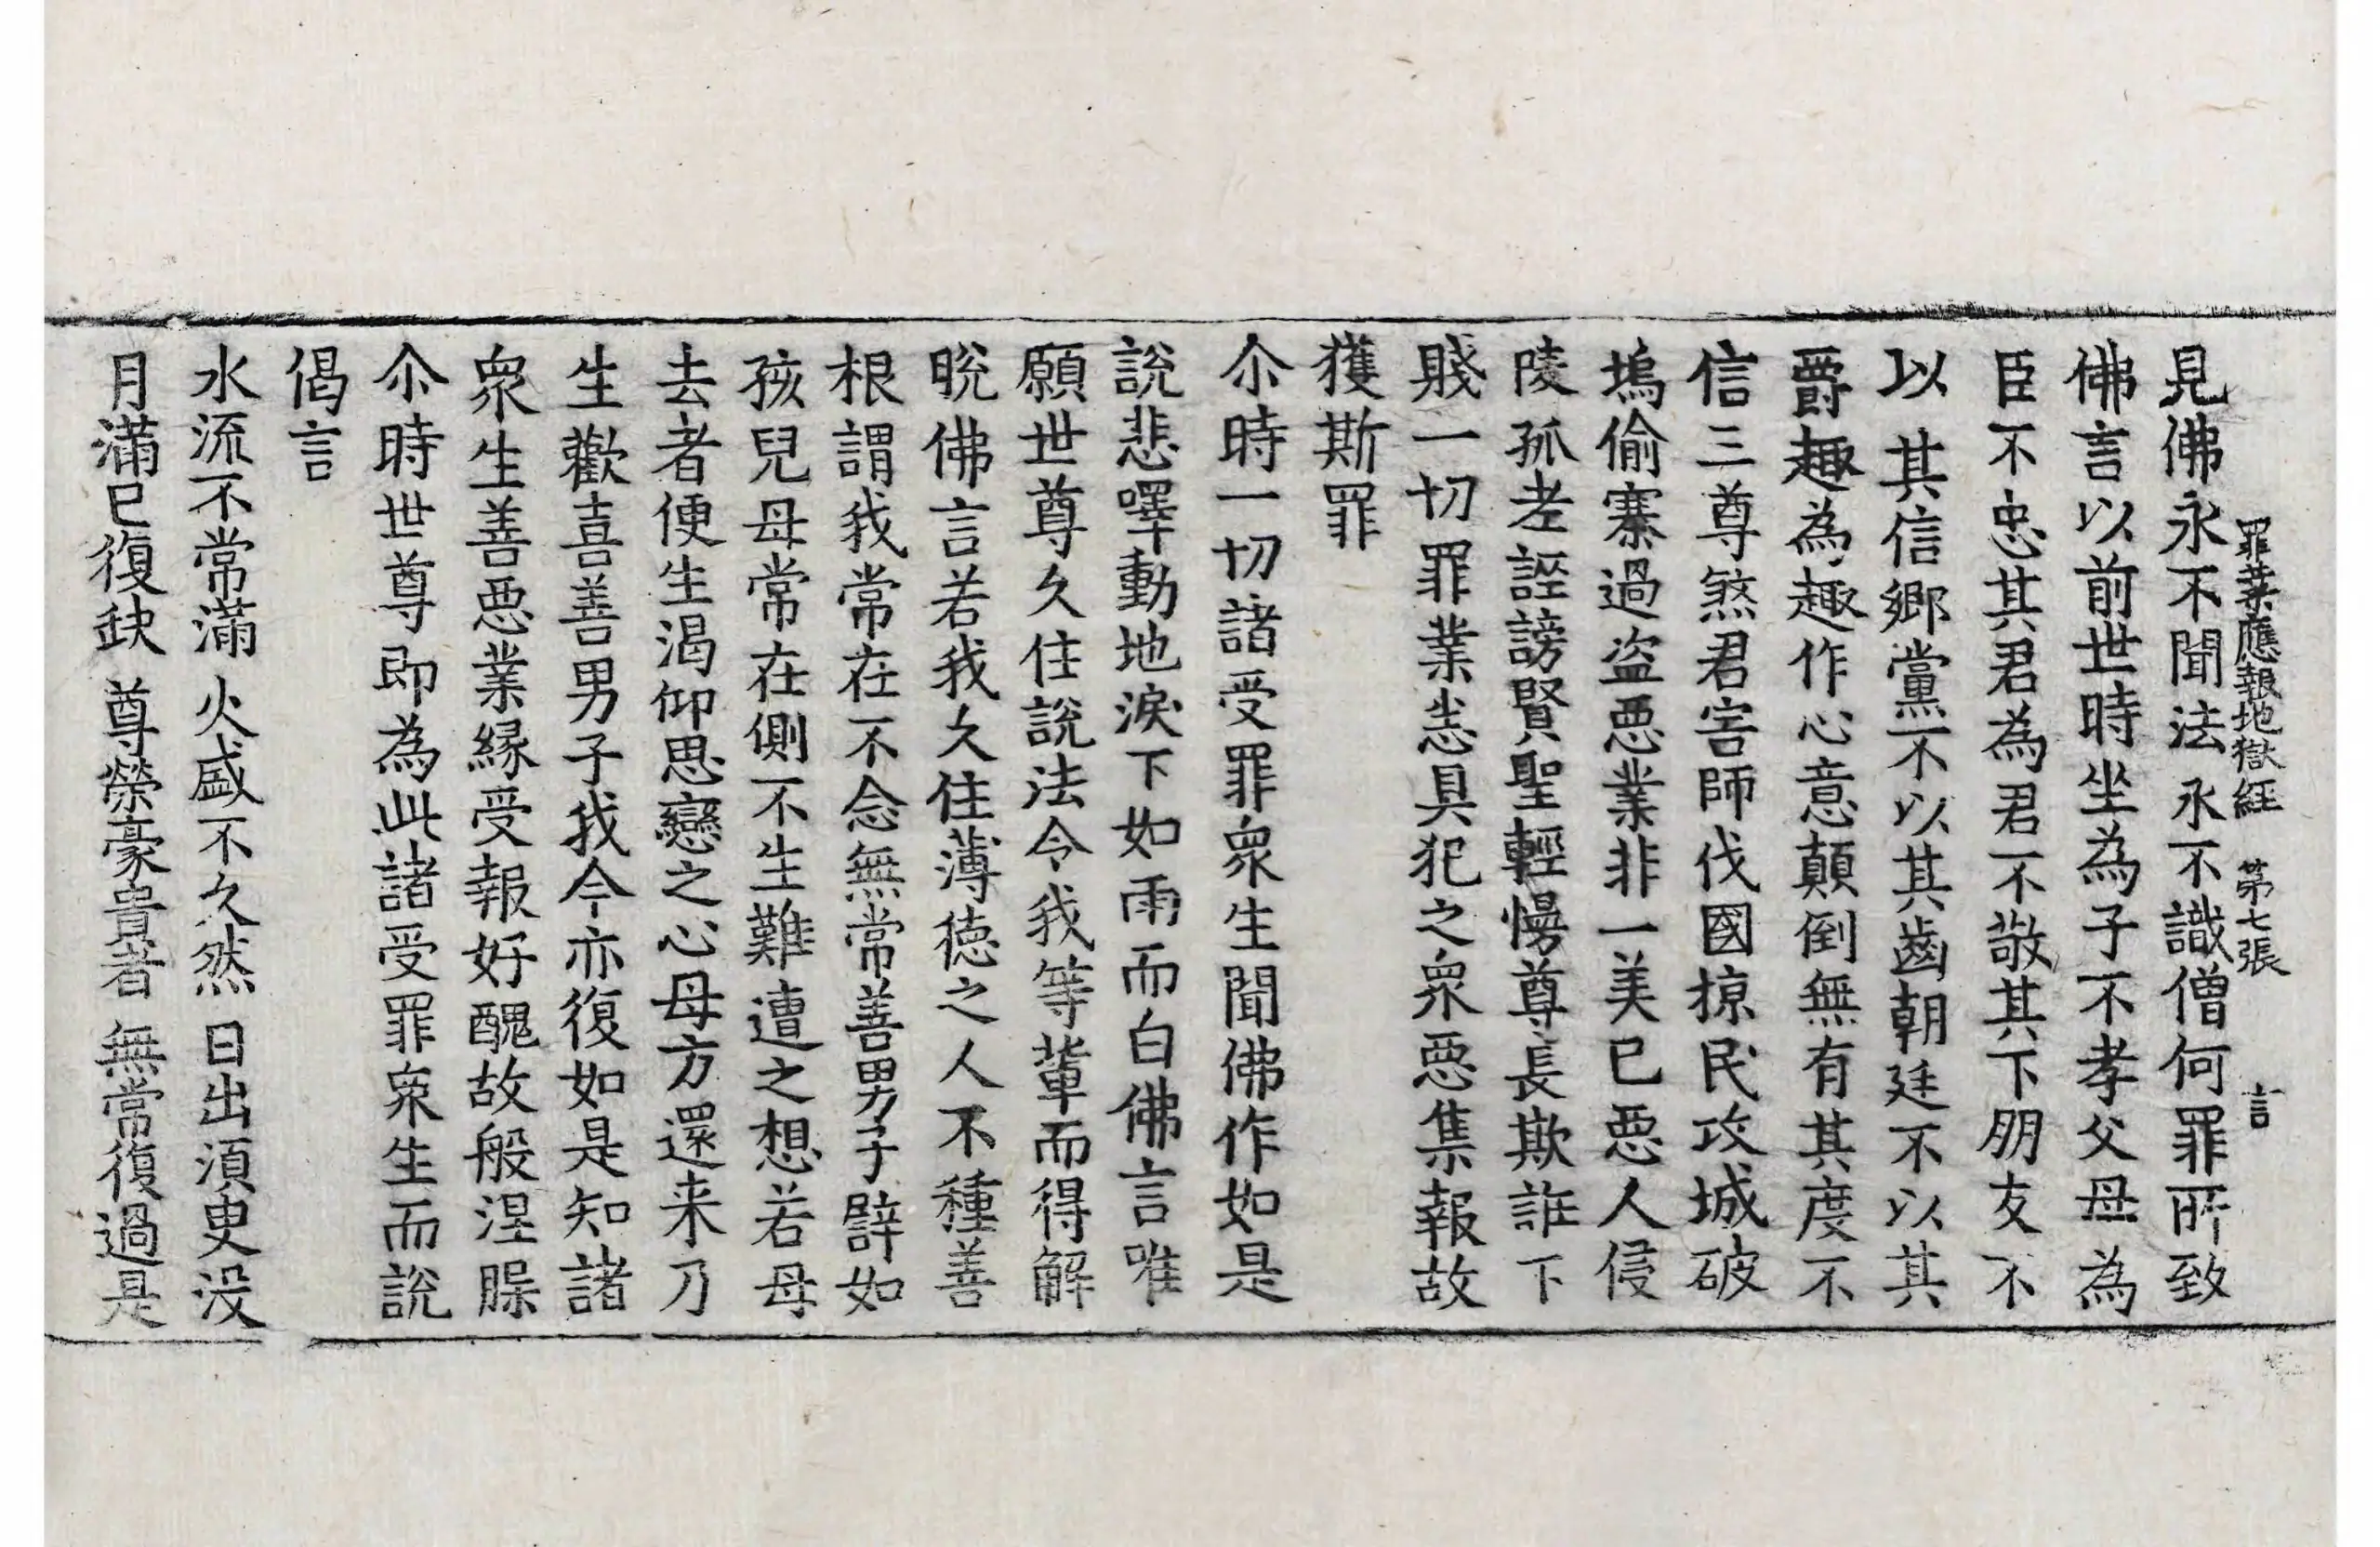 罪業應報地獄經 第七張 言
見佛永不聞法永不識僧何罪所致
佛言以前世時坐為子不孝父母為
臣不忠其君為君不敬其下朋友不
以其信鄉黨不以其齒朝廷不以其
爵趣為趣作心意顛倒無有其度不
信三尊煞君害師伐國掠民攻城破
塢偷寨過盜惡業非一美已惡人侵
陵孤老誣謗賢聖輕慢尊長欺誑下
賤一切罪業悉具犯之眾惡集報故
獲斯罪
尒時一切諸受罪眾生聞佛作如是
說悲㘁動地淚下如雨而白佛言唯
願世尊久住說法令我等輩而得解
脫佛言若我久住薄德之人不種善
根謂我常在不念無常善男子譬如
孩兒母常在側不生難遭之想若母
去者便生渴仰思戀之心母方還来乃
生歡喜善男子我今亦復如是知諸
眾生善惡業緣受報好醜故般涅槃
尒時世尊即為此諸受罪眾生而說
偈言
水流不常滿 火盛不久然 日出須臾沒
月滿已復缺 尊榮豪貴者 無常復過是